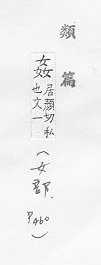 類篇
姦居顏切私
也文一
(女部, P460)